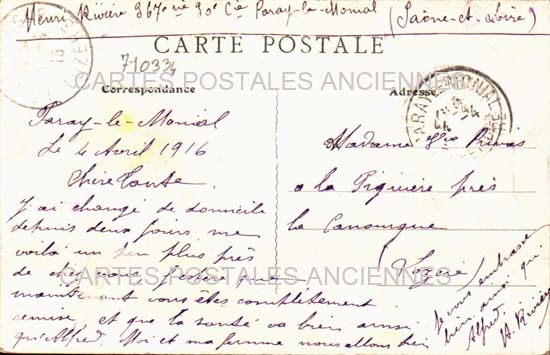 Henri Rivière 367e ne 30e Cie Paray-le-Monial (Saône-et-Loire)
CARTE POSTALE
710334
CARTES POSTALES ANCIENNES
Correspondance
Adresse
PARAY-LE-MONIAL
Paray-le-Monial
Le 4 Avril 1916
Chère Tante
J'ai changé de domicile
depuis deux jours, me
voilà un peu plus près
de chez vous j'espère que
maintenant vous êtes complètement
remise, et que la santé va bien ainsi
qu'Alfred. Moi et ma femme nous allons bien
Madame Privas
a la Piguière près
la Canourgue
(Lozère)
CARTES POSTALES ANCIENNES
Je vous embrasse
bien ainsi qu'
Alfred.
H. Rivière